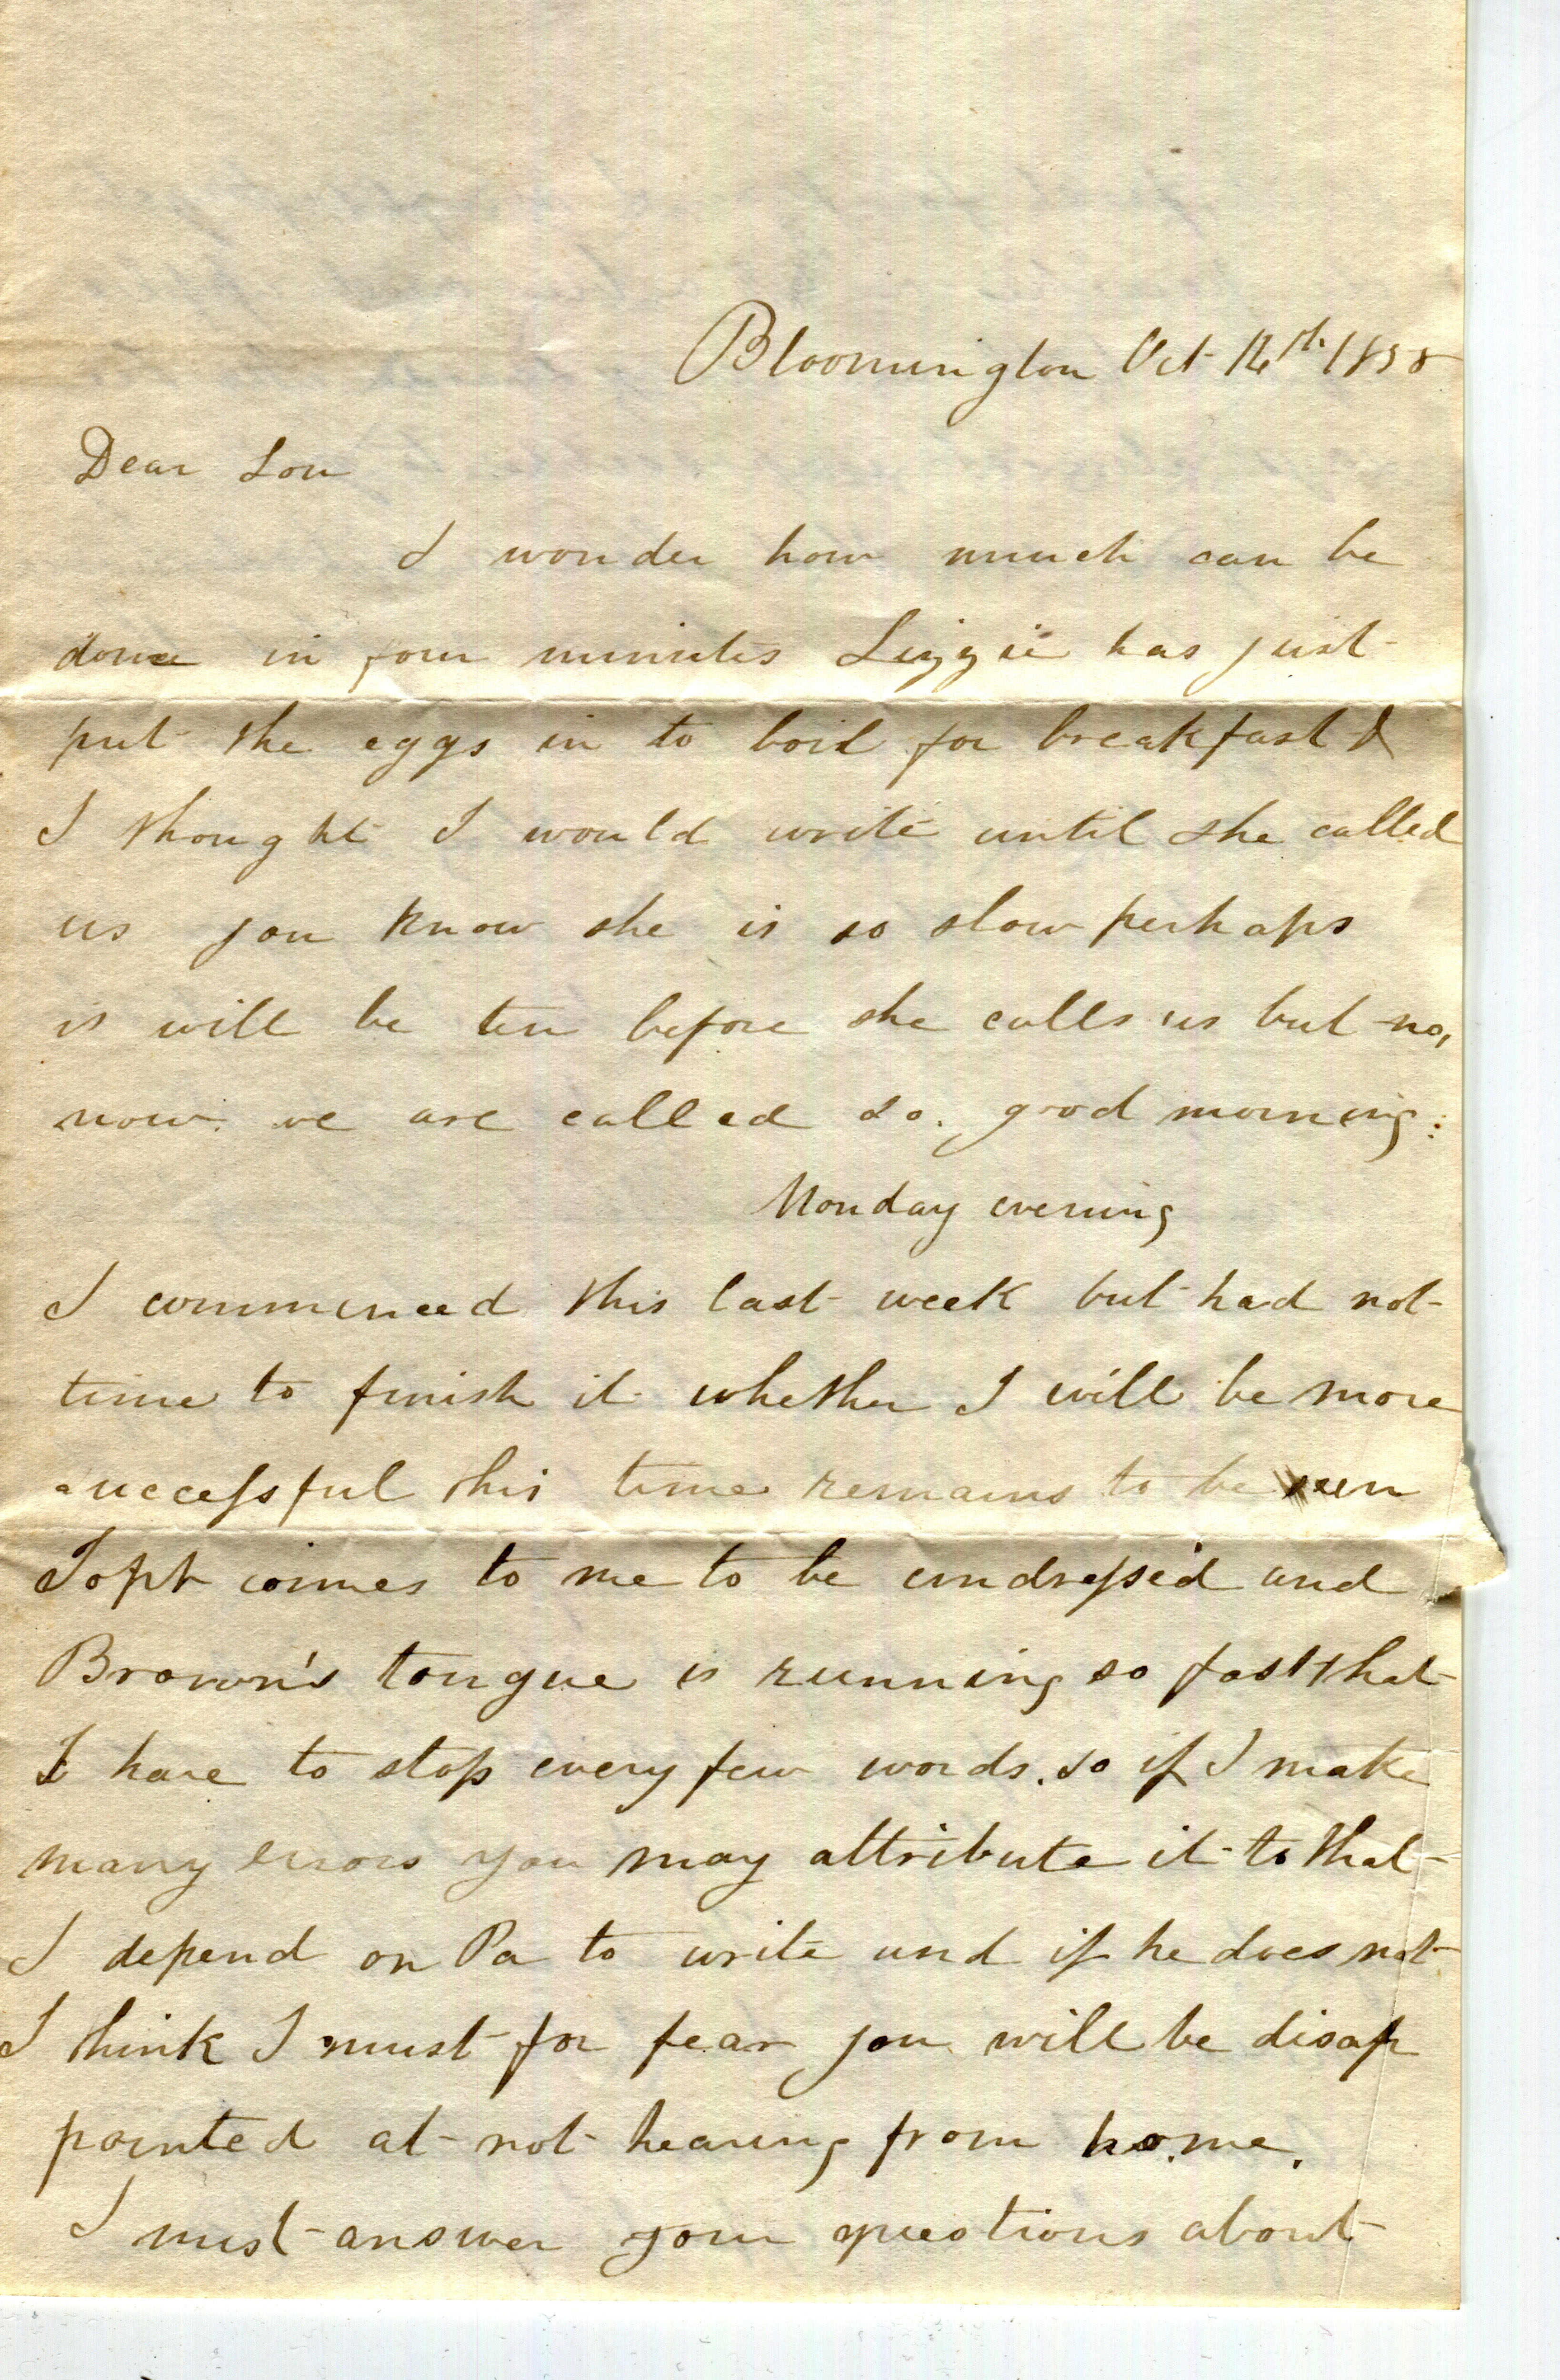 Bloomington Oct 14th 1858
Dear Lou
I wonder how much can be
done in four minutes Lizzie has just
put the eggs in to boil for breakfast &
I thought I would write until she called
us you know she is so slow perhaps
is will be ten before she calls us but no,
now we are called so. good morning:
Monday evening
I commenced this last week but had not
time to finish it whether I will be more
successful this time remains to be seen
comes to me to be undressed and
Brown's tongue is running so fast that
I have to stop every few words. so if I make
many errors you may attribute it to that
I depend on Pa to write and if he does not
I think I must for fear you will be disap
pointed at not hearing from home.
I must answer your questions about